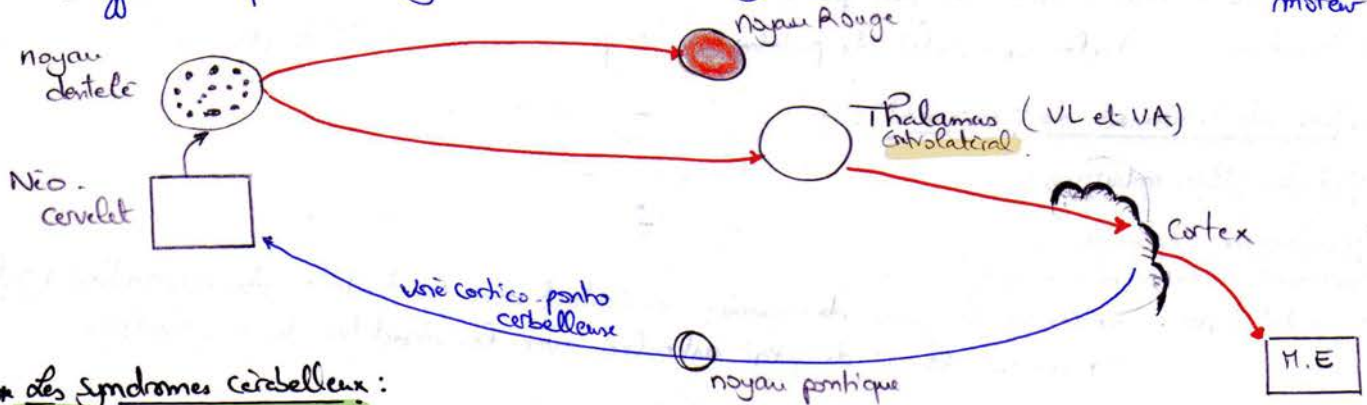 moteur
noyau Rouge
noyau
dentelé
Thalamus (VL et VA)
controlatéral
Néo-
cervelet
Cortex
voie cortico-ponto
cerbelleuse
noyau pontique
M.E
* Les syndromes cérébelleux :